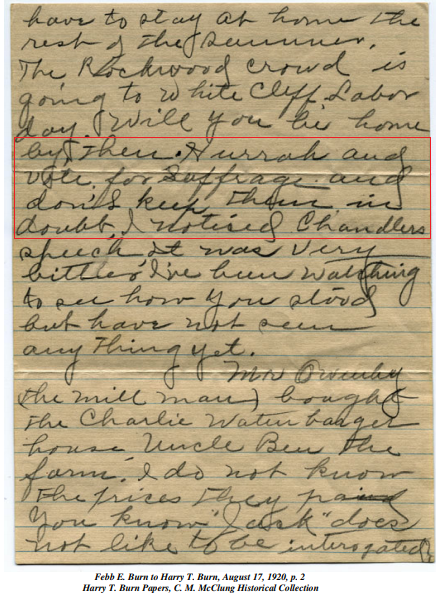 have to stay at home the
rest of the summer.
The Rockwood crowd is
going to White Cliff Labor
day. Will you be home
by then. Hurrah and
vote for Suffrage and
don't keep them in
doubt. I noticed Chandlers
speech it was very
bitter. I've been watching
to see how you stood
but have not seen
any thing yet.
Mr.
(the mill man) bought
the Charlie Waterbarger
house Uncle Ben the
farm. I do not know
the prices they paid
You know "Jack" does
not like to be interogated
Febb E. Burn to Harry T. Burn, August 17, 1920, p. 2
Harry T. Burn Papers, C. M. McClung Historical Collection